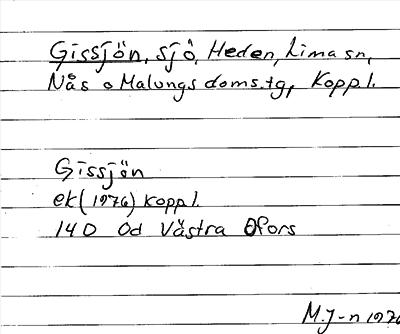 Gissjön, sjö, Heden, Lima sn,
Nås o Malungs doms.tg, Kopp.l.
Gissjön
ek (1976) Kopp.l.
14 D 0d Västra Ofors
M.J-n 1976